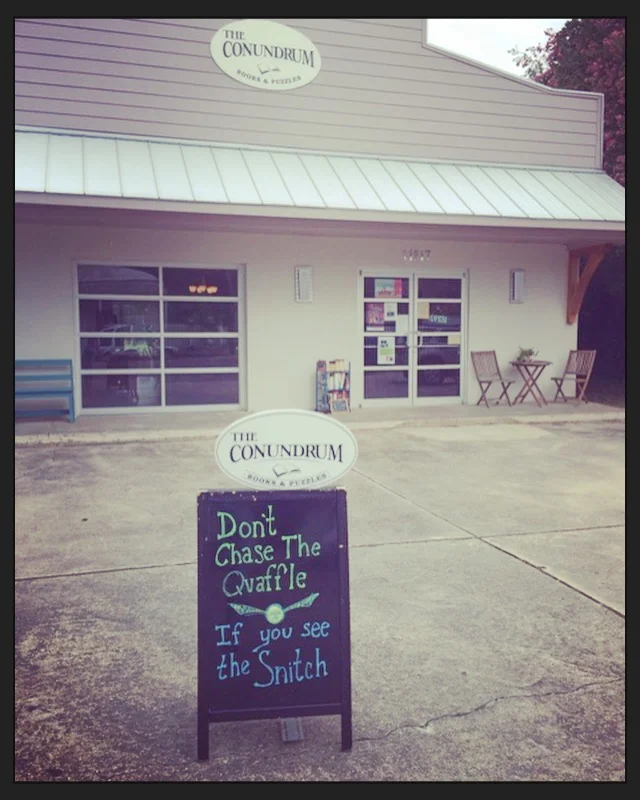 THE
CONUNDRUM
BOOKS & PUZZLES
THE
CONUNDRUM
BOOKS & PUZZLES
Don't
Chase The
Quaffle
If you see
the Snitch